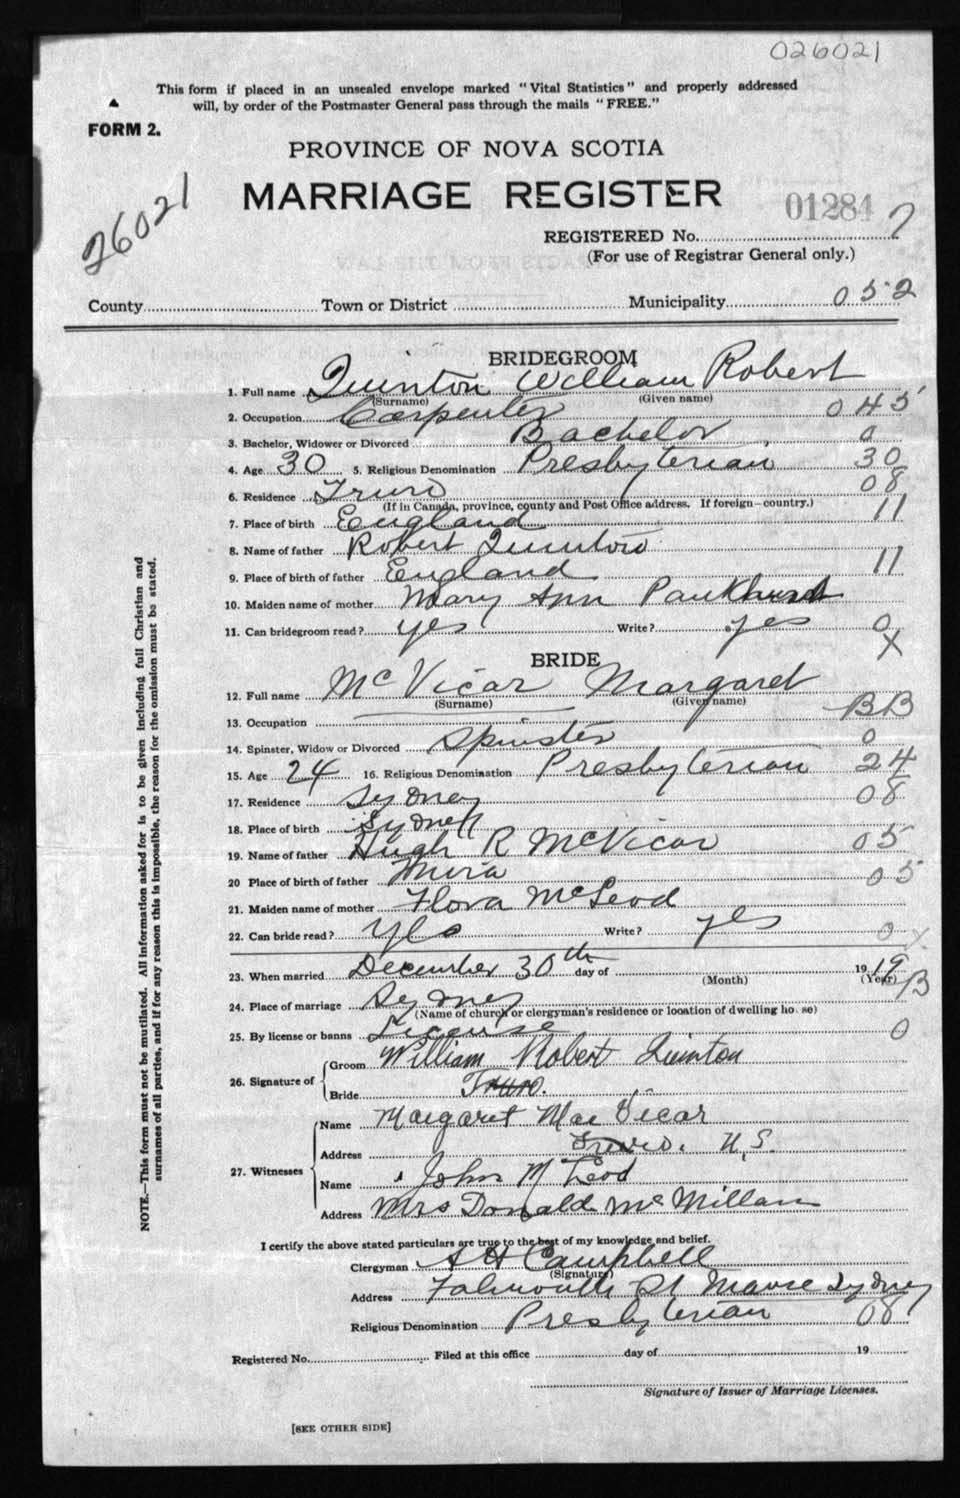 026021
This form if placed in an unsealed envelope marked "Vital Statistics" and properly addressed
will, by order of the Postmaster General pass through the mails "FREE."
FORM 2.
PROVINCE OF NOVA SCOTIA
26021
MARRIAGE REGISTER
01284
REGISTERED No. 7
(For use of Registrar General only.)
County Town or District Municipality 052
BRIDEGROOM
1. Full name Quinton William Robert
(Surname) (Given name)
2. Occupation Carpenter 045
3. Bachelor, Widower or Divorced Bachelor 0
4. Age 30 5. Religious Denomination Presbyterian 30
6. Residence Truro 08
(If in Canada, province, county and Post Office address. If foreign—country.)
7. Place of birth England 11
8. Name of father Robert Quinton
9. Place of birth of father England 11
10. Maiden name of mother Mary Ann Pankhurst
11. Can bridegroom read? yes Write? yes 0
X
BRIDE
12. Full name McVicar Margaret
(Surname) (Given name)
13. Occupation BB
14. Spinster, Widow or Divorced Spinster 0
15. Age 24 16. Religious Denomination Presbyterian 24
17. Residence Sydney 08
18. Place of birth Sydney
19. Name of father Hugh R McVicar 05
20 Place of birth of father Mira 05
21. Maiden name of mother Flora McLeod
22. Can bride read? yes Write? yes 0 X
23. When married December 30th day of 1919
(Month) (Year) B
24. Place of marriage Sydney
(Name of church or clergyman's residence or location of dwelling house)
25. By license or banns License 0
26. Signature of Groom William Robert Quinton
Bride Truro.
27. Witnesses Name Margaret MacVicar
Address Truro. N.S.
Name John McLeod
Address Mrs Donald McMillan
I certify the above stated particulars are true to the best of my knowledge and belief.
Clergyman A H Campbell
(Signature)
Address Falmouth St Manse Sydney
Religious Denomination Presbyterian 08
Registered No. Filed at this office day of 19
Signature of Issuer of Marriage Licenses.
[SEE OTHER SIDE]
NOTE.—This form must not be mutilated. All information asked for is to be given including full Christian and
surnames of all parties, and if for any reason this is impossible, the reason for the omission must be stated.